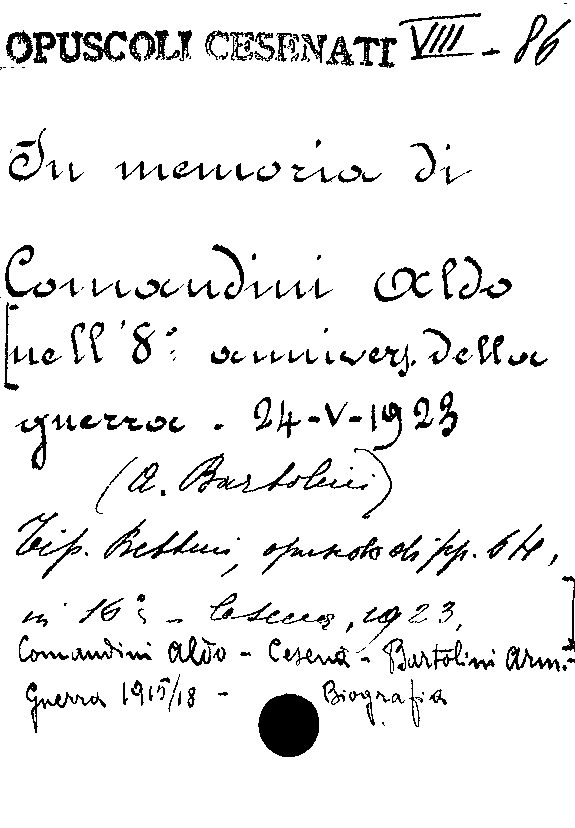 OPUSCOLI CESENATI VIII - 86
In memoria di
Comandini Aldo
[nell'8° annivers. della
guerra. 24-V-1923
(A. Bartolini)
Tip. Bettini, opuscolo di pp. 64,
in 16° - Cesena, 1923,]
Comandini Aldo - Cesena - Bartolini Arm.-
Guerra 1915/18 - Biografia